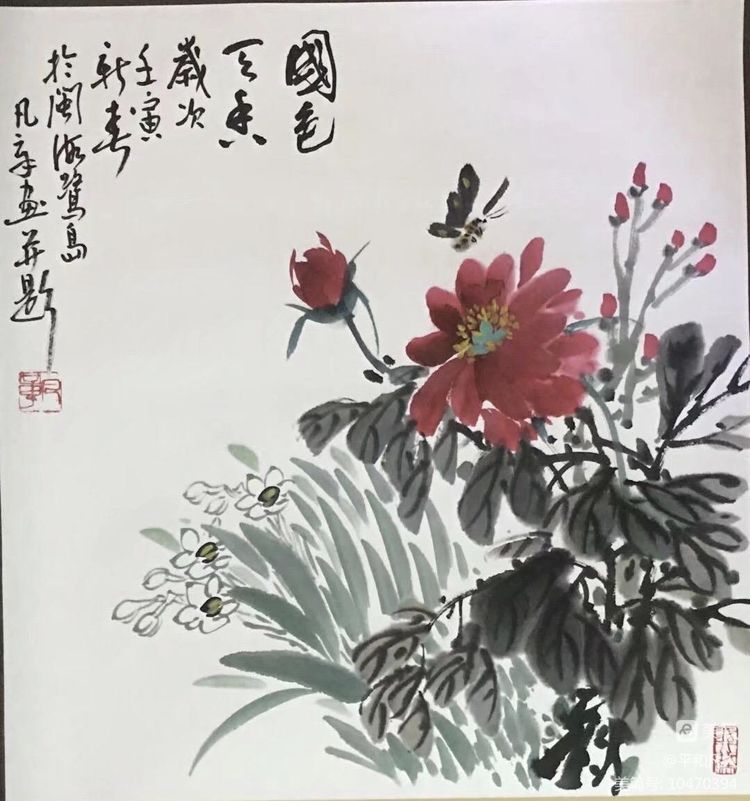 國色
天香
歲次
壬寅
新春
於闽海鷺島
凡章畫并題
美篇
@平和
美篇号: 10470394